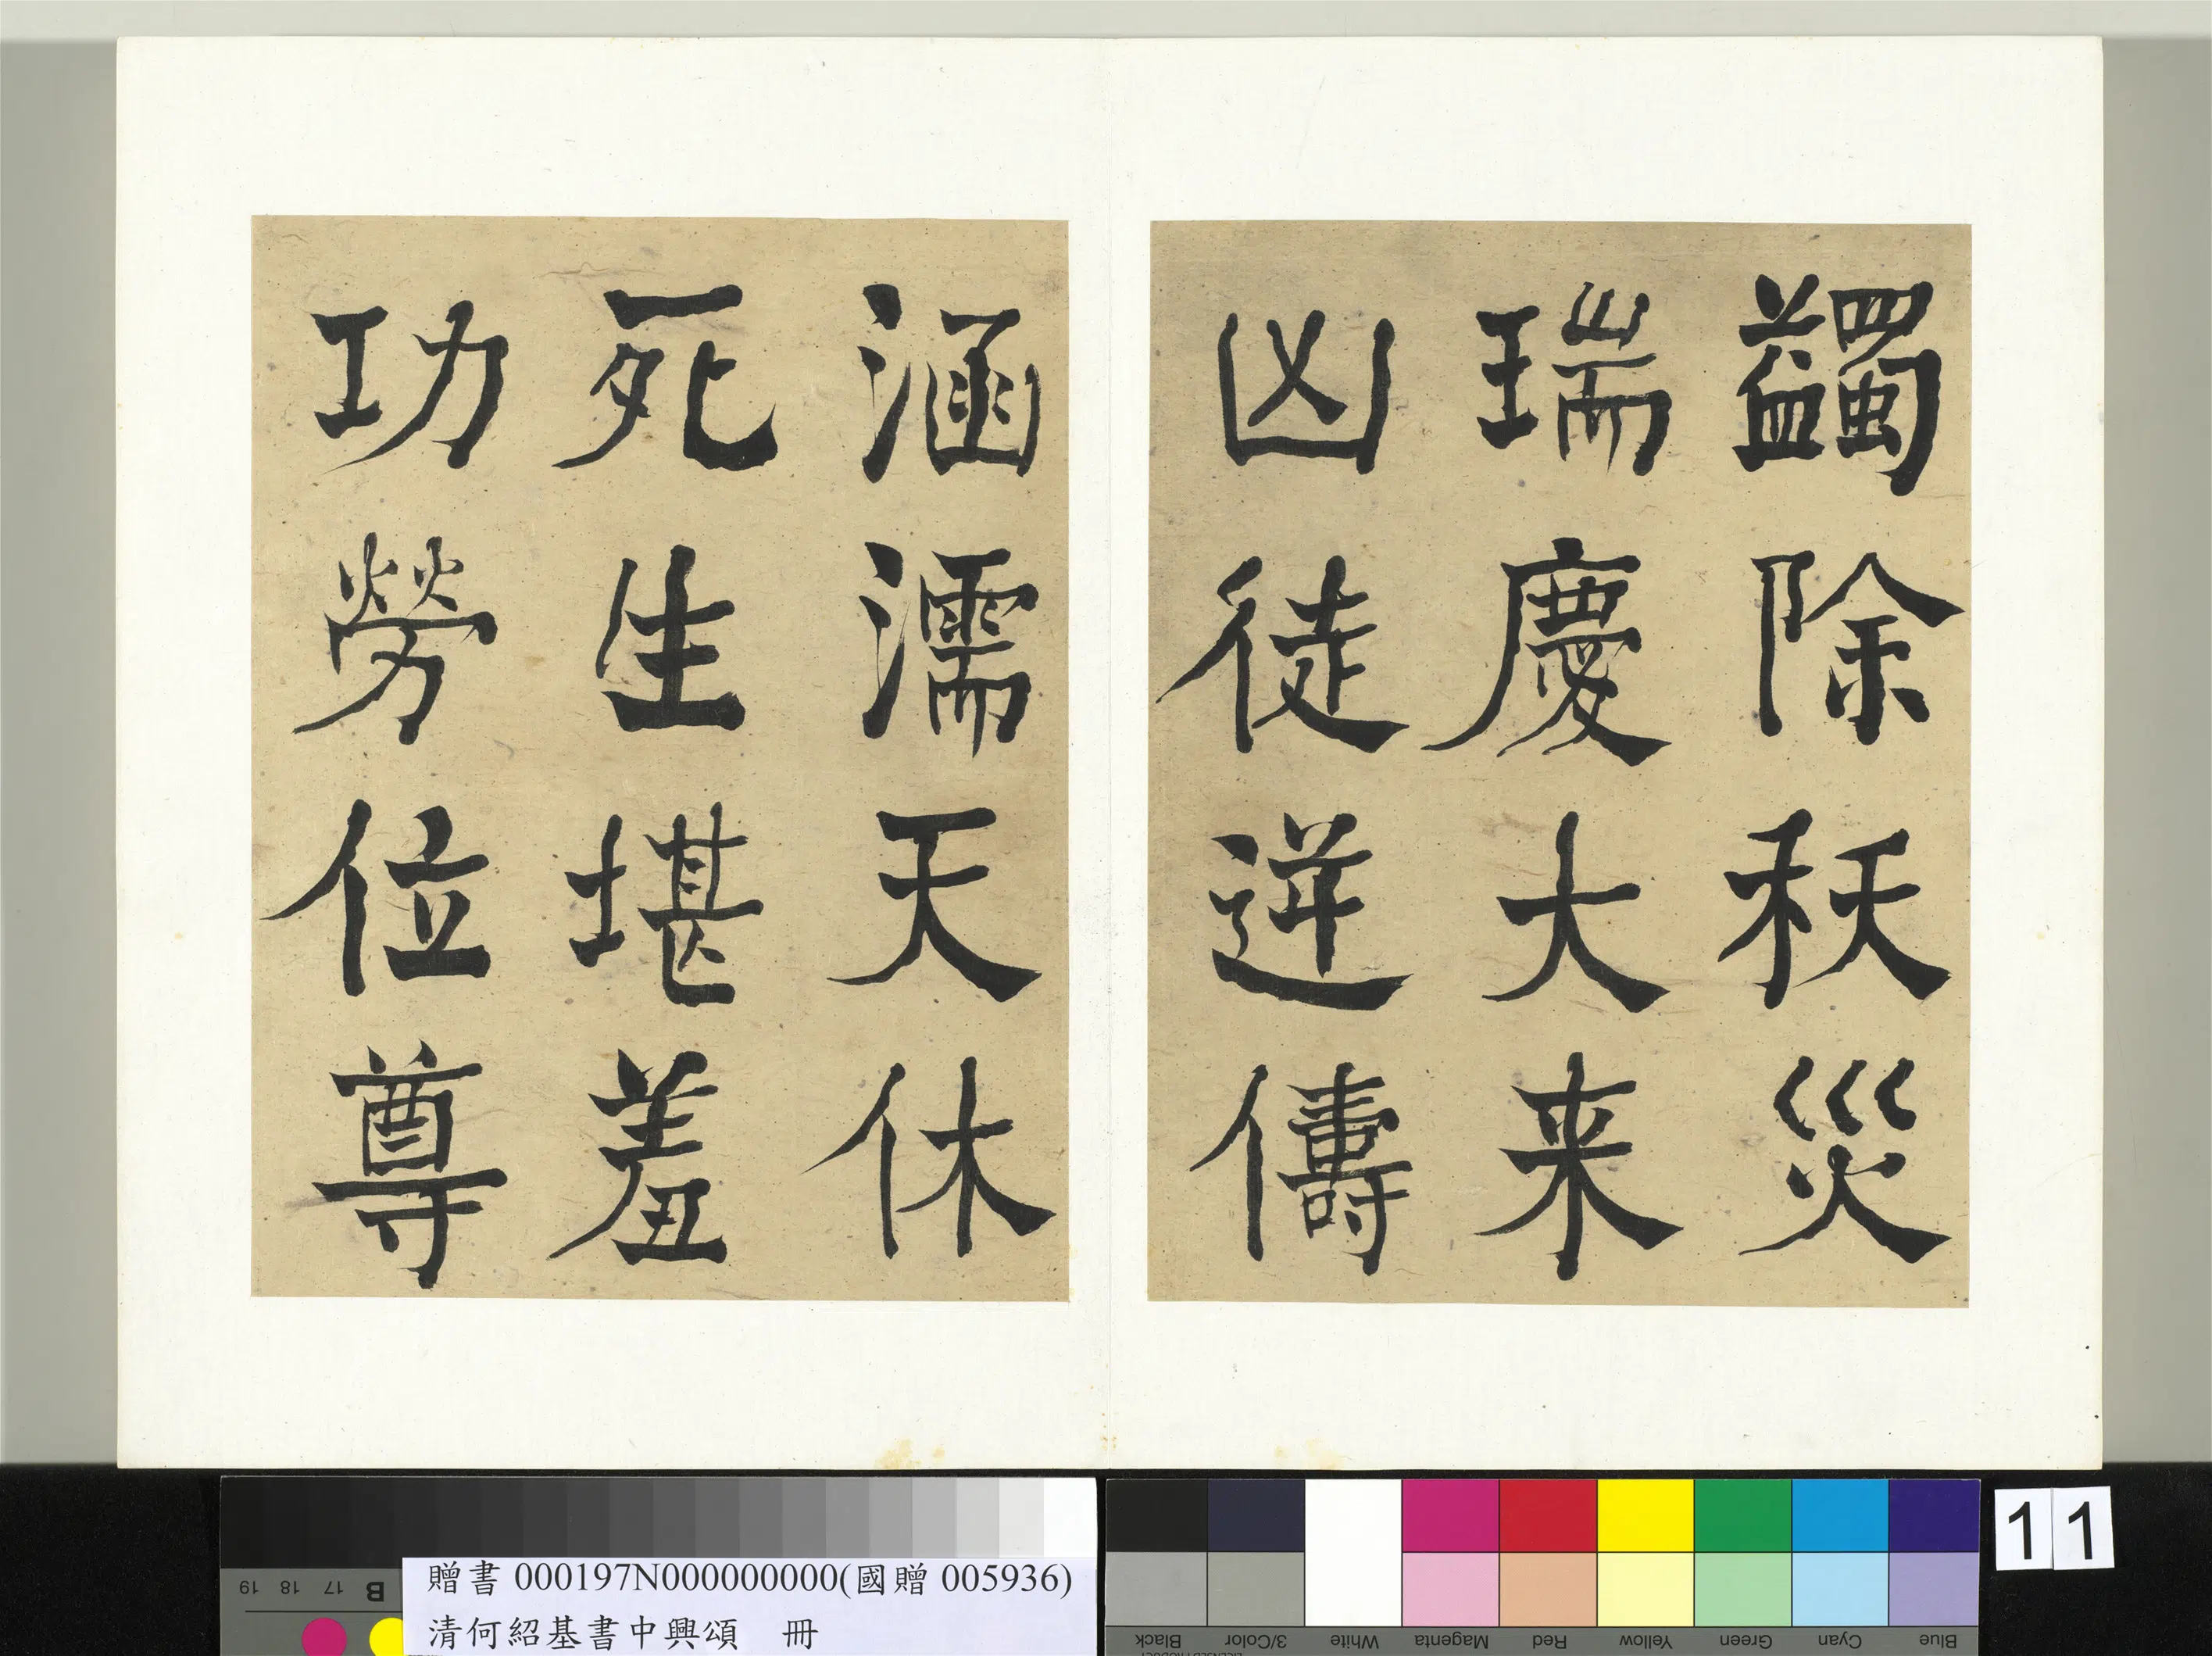 蠲除秡災
瑞慶大来
凶徒逆儔
涵濡天休
死生堪羞
功勞位尊
贈書 000197N000000000(國贈 005936)
清何紹基書中興頌　冊
11
19 18 17 B
Black 3/Color White Magenta Red Yellow Green Cyan Blue